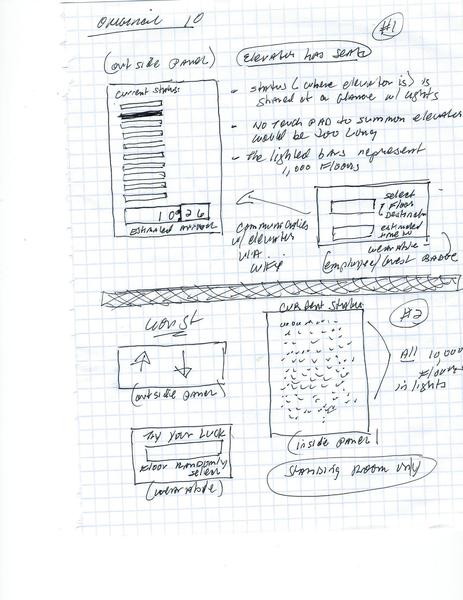 Original 10
#1
(outside panel)
Elevator has seats
Current status
10 26
Estimated arrival
- Status (where elevator is) is
shared at a glance w/ lights
- No touch PAD to summon elevator
would be too long
- The lighted bars represent
1,000 Floors
Communicates
w/ elevator
via
WiFi
Select
Floor
Destination
estimated
time
wearable
(employee/guest BADGE)
worst
(outside panel)
Try Your Luck
Floor Randomly
select
(wearable)
#2
Current status
(inside panel)
All 10,000
Floors
in lights
Standing Room only